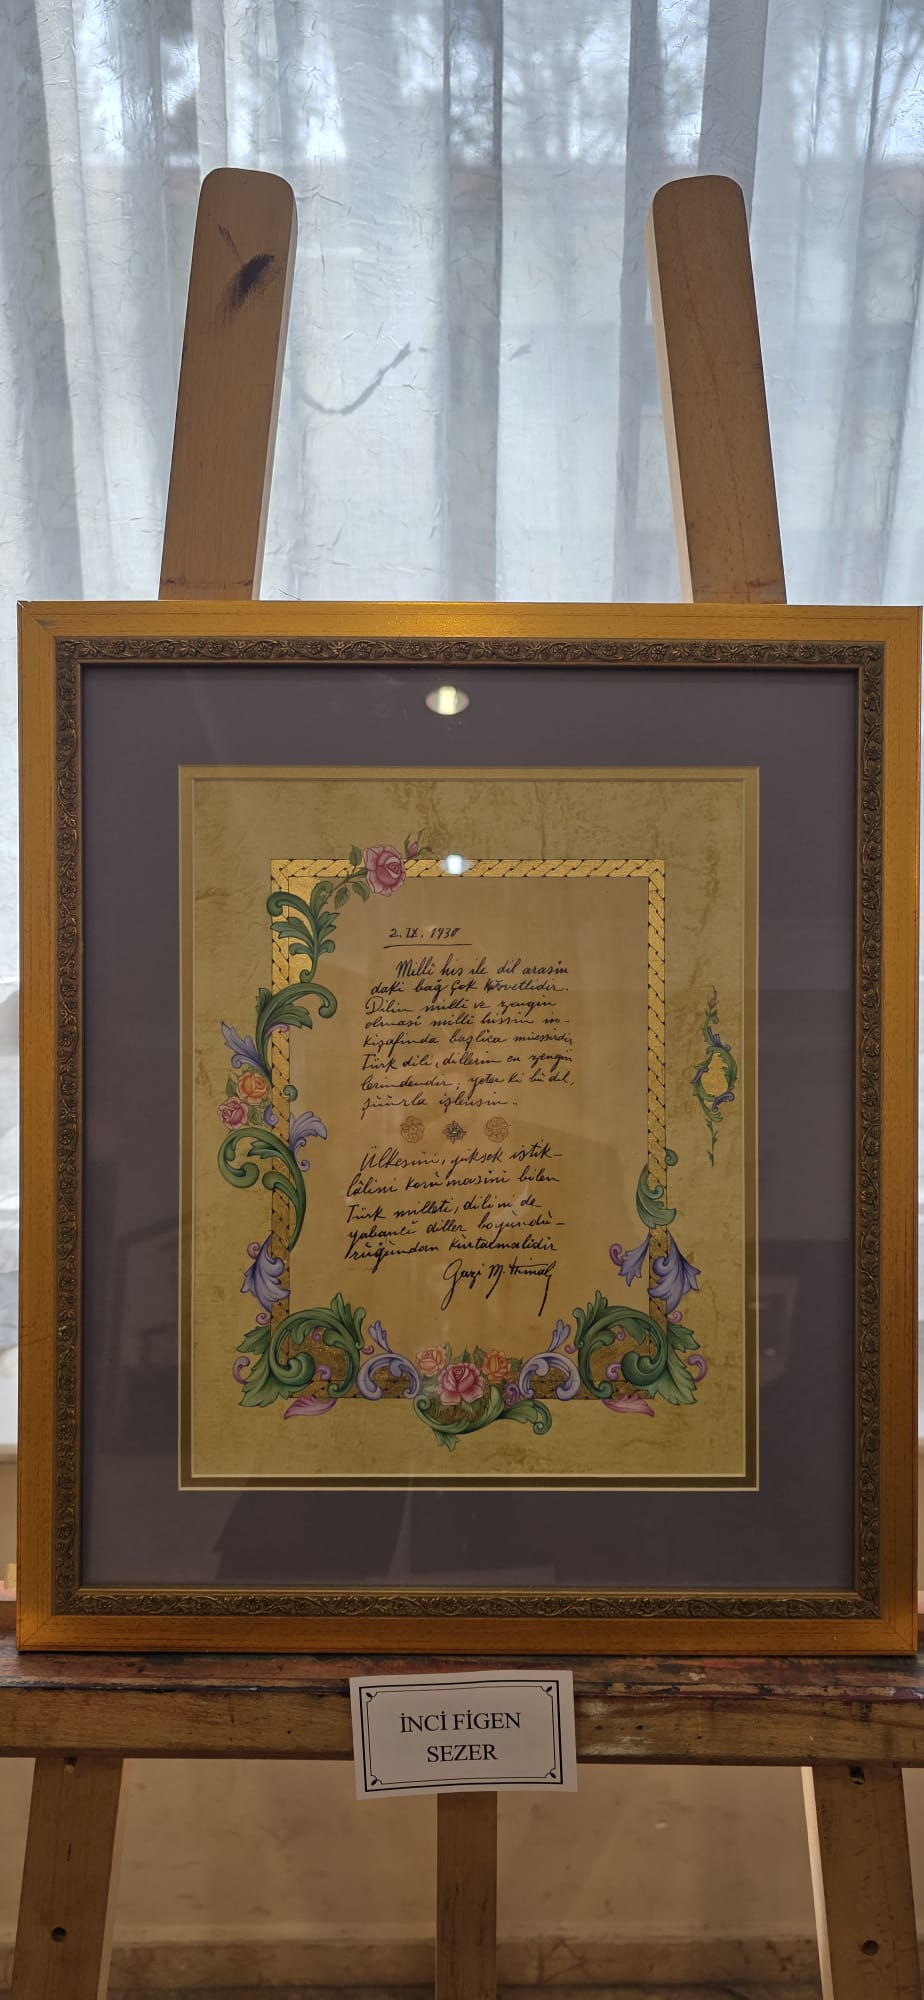 2.IX.1930
Milli his ile dil arasın
daki bağ çok kuvvetlidir.
Dilin milli ve zengin
olması milli hissin in-
kişafında başlıca müessirdir
Türk dili, dillerin en zengin
lerindendir; yeter ki bu dil,
şuurla işlensin.
Ülkesini, yüksek istik-
lâlini korumasını bilen
Türk milleti, dilini de
yabancı diller boyundu-
ruğundan kurtarmalıdır
Gazi M. Kemal
İNCİ FİGEN
SEZER